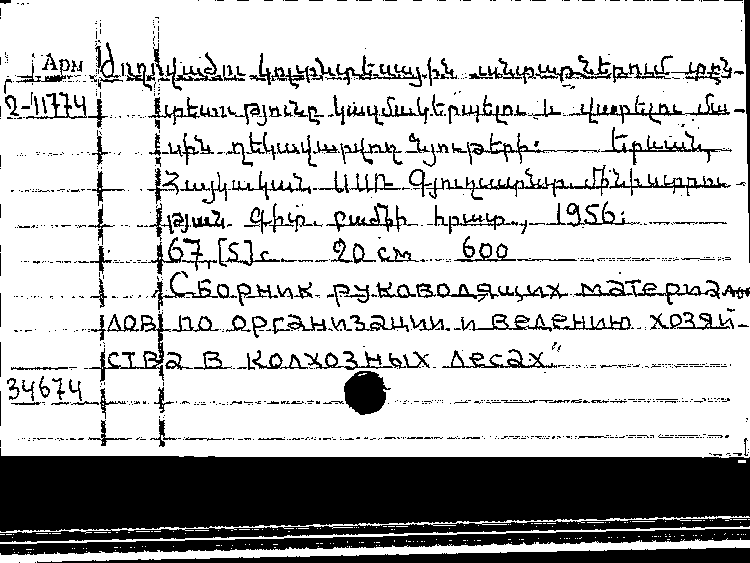 Арм Ժողովածու կոլտնտեսային անտառներում տըն-
2-11774 տեսությունը կազմակերպելու և վարելու մա-
սին ղեկավարվող նյութերի: Երևան,
Հայկական ՍՍՌ Գյուղատնտ. մինիստրու
թյան գիտ. բաժնի հրատ., 1956:
67, [5] с. 20 см 600
Сборник руководящих материа
лов по организации и ведению хозяй-
ства в колхозных лесах"
34674